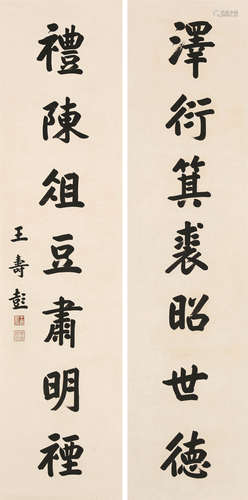 澤衍箕裘昭世德
禮陳俎豆肅明禋
王壽彭